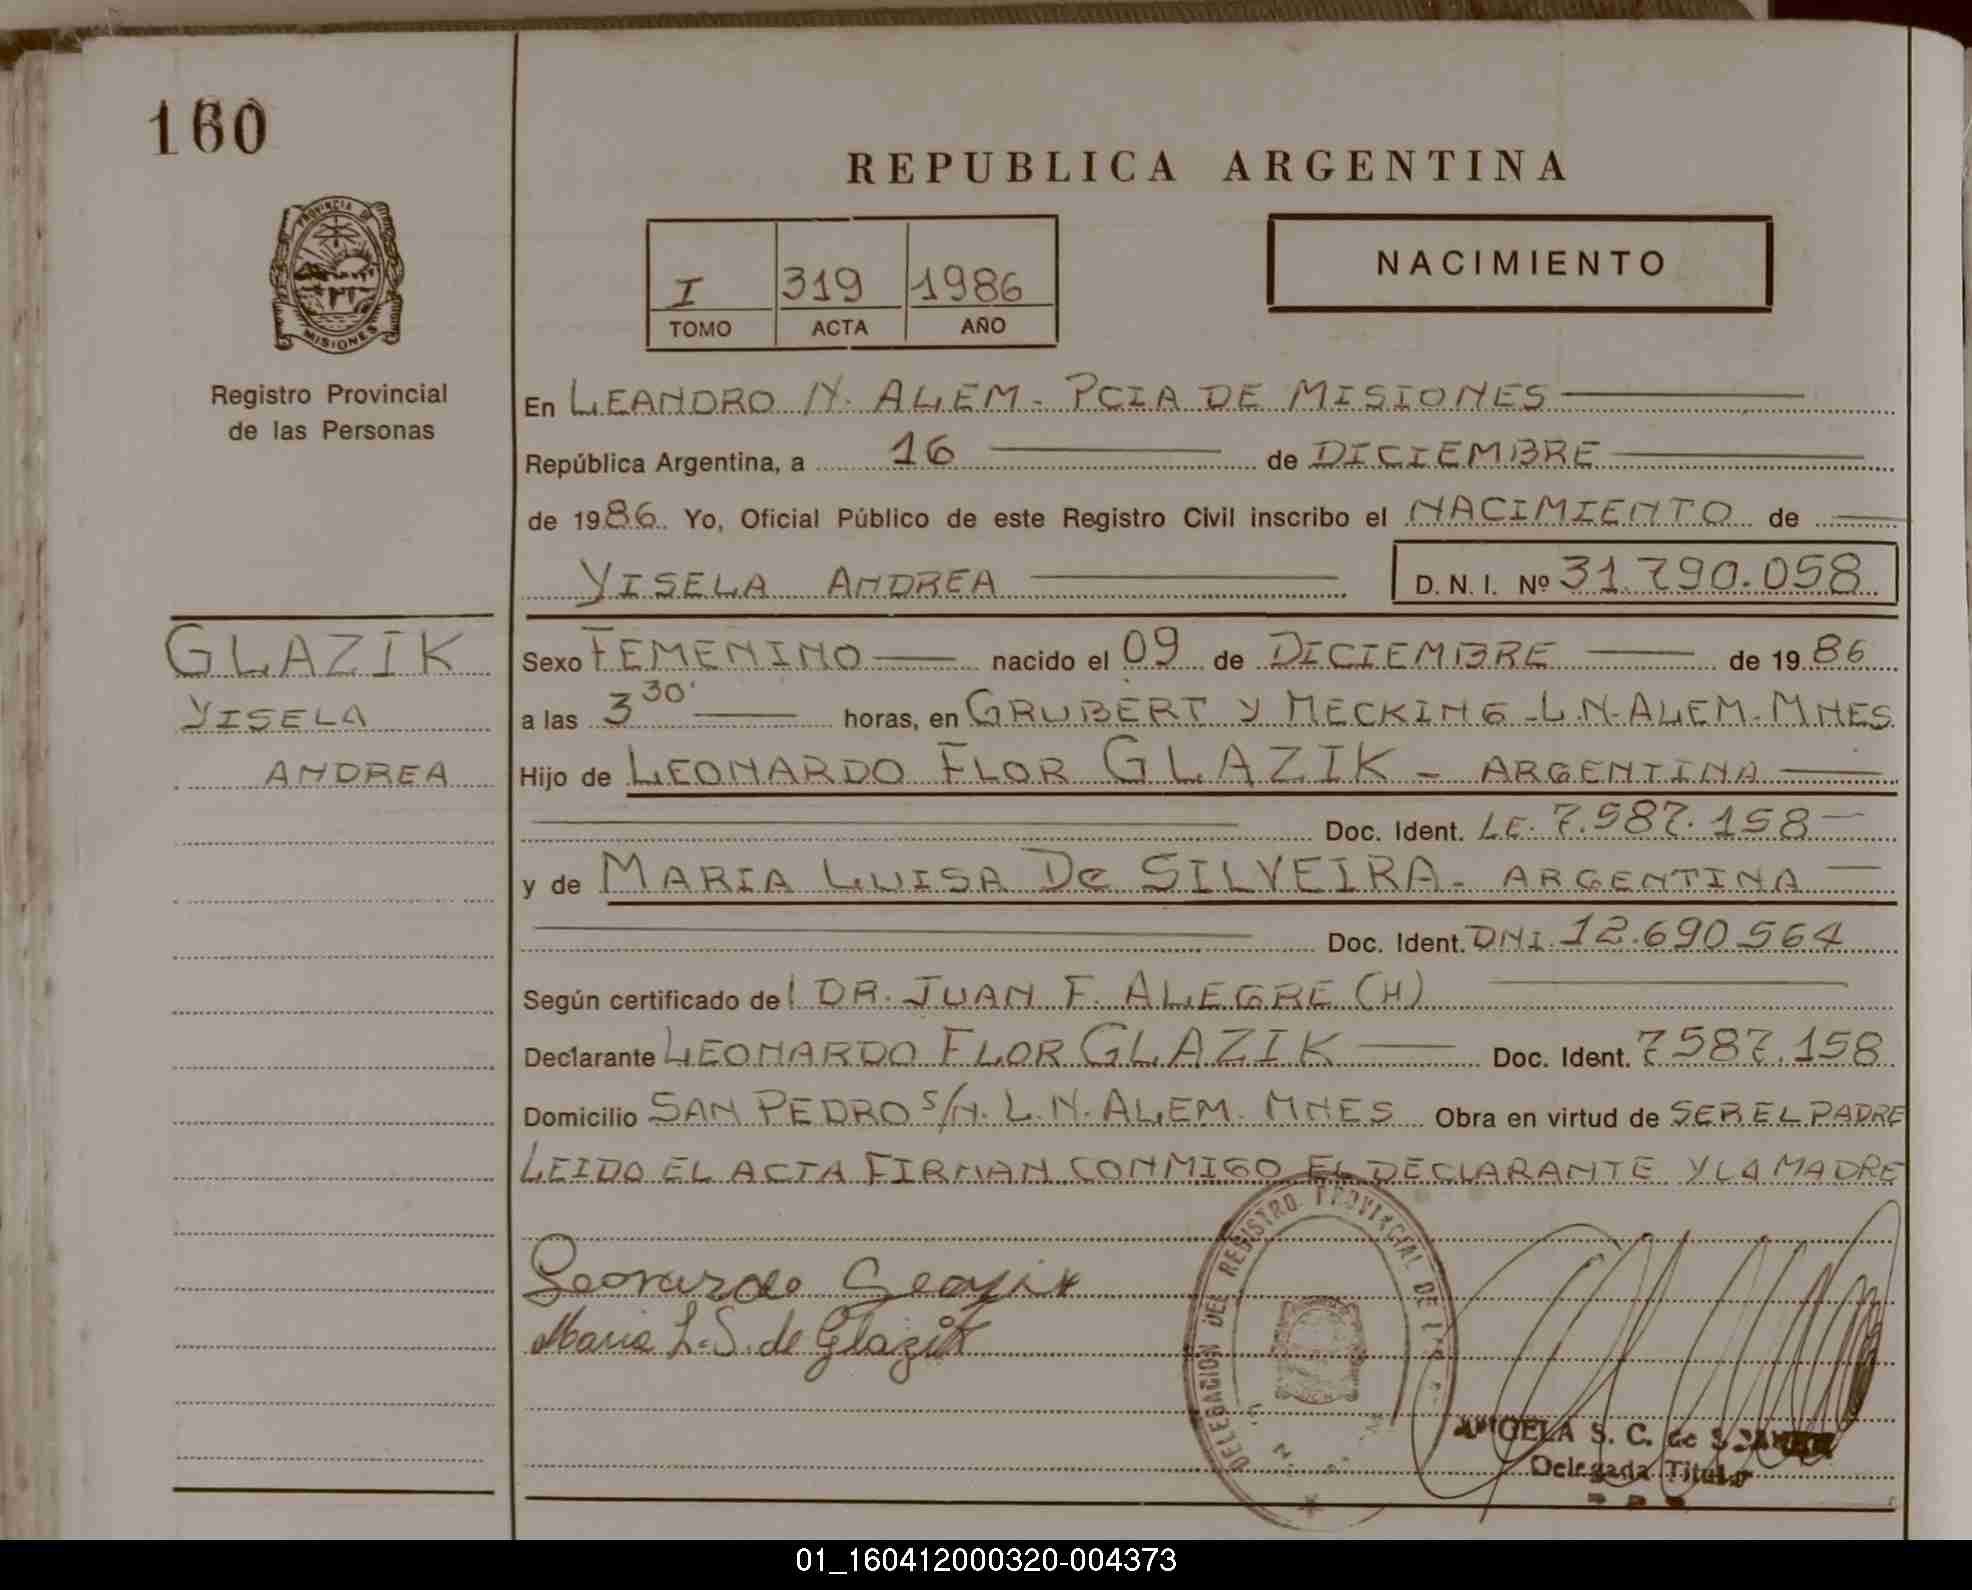 160
REPUBLICA ARGENTINA
PROVINCIA DE
MISIONES
I 319 1986
TOMO ACTA AÑO
NACIMIENTO
Registro Provincial
de las Personas
En LEANDRO N. ALEM - PCIA DE MISIONES
República Argentina, a 16 de DICIEMBRE
de 1986 Yo, Oficial Público de este Registro Civil inscribo el NACIMIENTO de
YISELA ANDREA D. N. I. Nº 31.790.058
GLAZIK
YISELA
ANDREA
Sexo FEMENINO nacido el 09 de DICIEMBRE de 1986
a las 3 30' horas, en GRUBERT Y MECKING - L.N. ALEM - MNES.
Hijo de LEONARDO FLOR GLAZIK - ARGENTINA
Doc. Ident. LE. 7.587.158
y de MARIA LUISA De SILVEIRA - ARGENTINA
Doc. Ident. DNI. 12.690.564
Según certificado del DR. JUAN F. ALEGRE (H)
Declarante LEONARDO FLOR GLAZIK Doc. Ident. 7587.158
Domicilio SAN PEDRO S/N. L.N. ALEM. MNES Obra en virtud de SER EL PADRE
LEIDO EL ACTA FIRMAN CONMIGO EL DECLARANTE Y LA MADRE
DELEGACION DEL REGISTRO PROVINCIAL DE
Leonardo Glazik
Maria L. S. de Glazik
ANGELA S. C. de
Delegada Titular
01_160412000320-004373